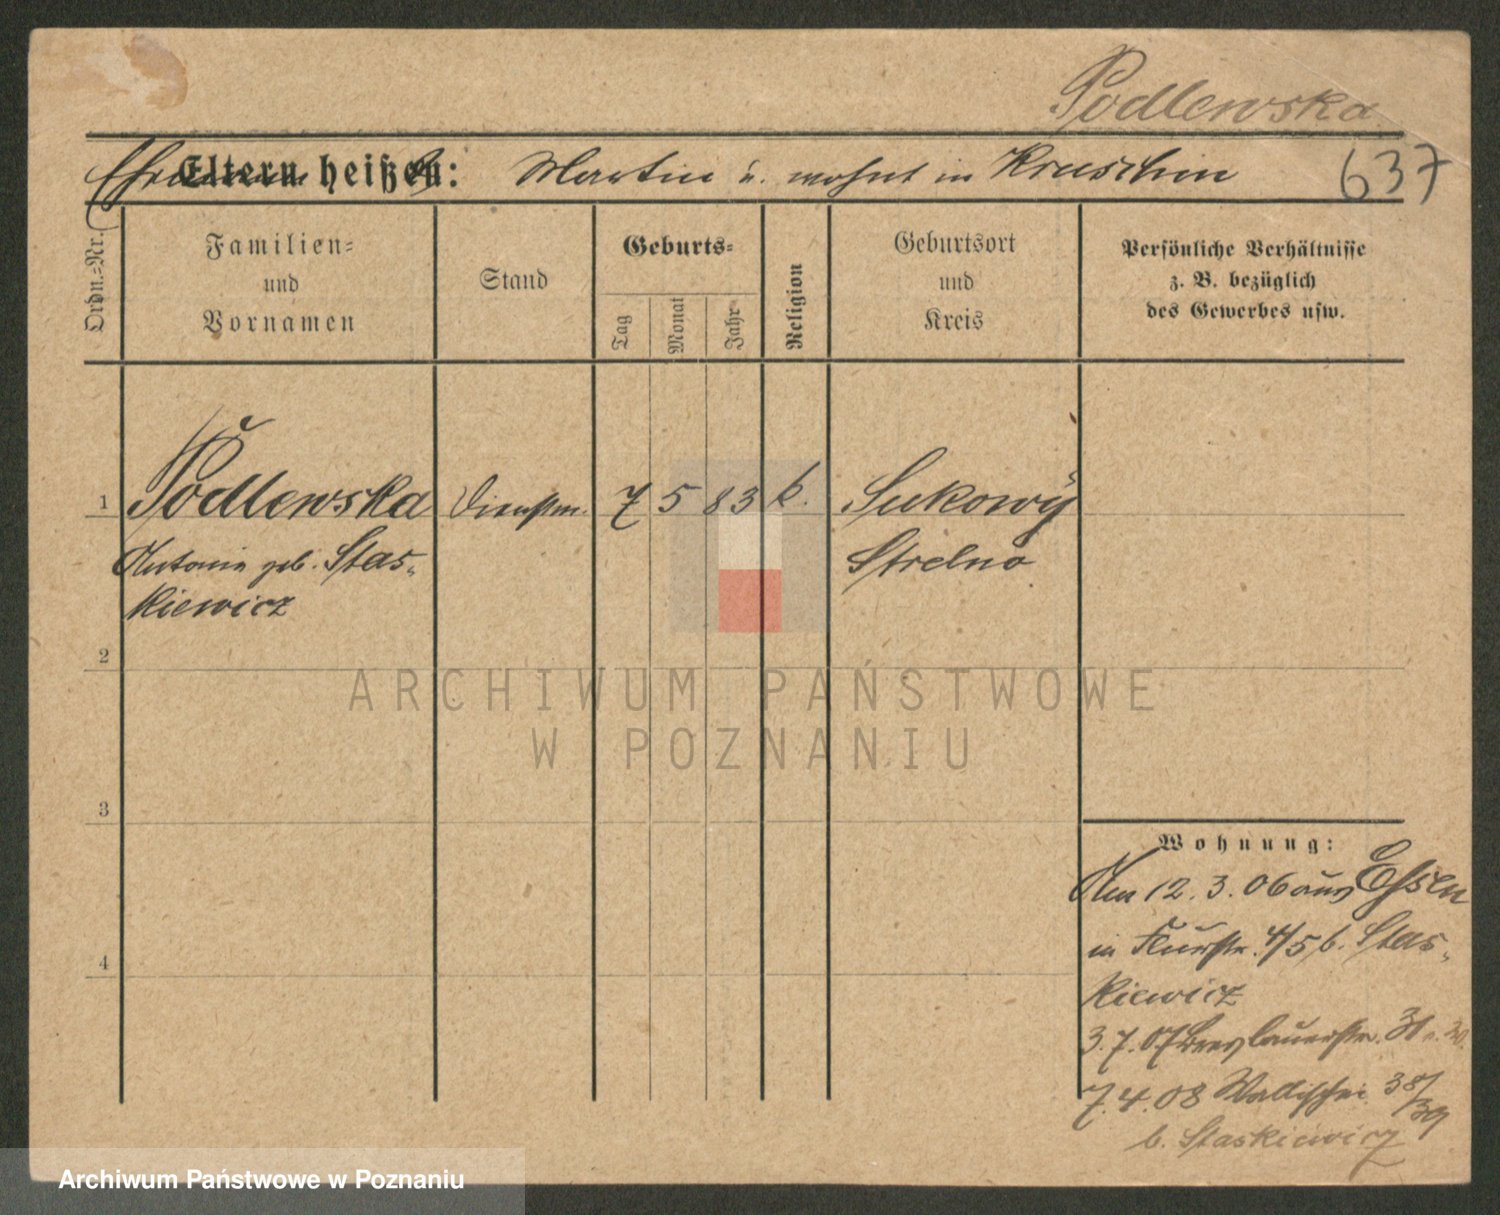 Podlewska
Ehemann
Eltern heißen: Martin u. wohnt in Kruschin 637
Ordn.=Nr.
Familien=
und
Vornamen
Stand
Geburts=
Tag
Monat
Jahr
Religion
Geburtsort
und
Kreis
Persönliche Verhältnisse
z. B. bezüglich
des Gewerbes usw.
1 Podlewska Dienstm. 7 5 83 k. Sukowy
Antonie geb. Stas- Strelno
kiewicz
2
3
4
Wohnung:
Am 12. 3. 06 aus Essen
in Flurstr. 4/5 b. Stas-
kiewicz
3. 7. 07 Breslauerstr. 31
7. 4. 08 Wallischei 38/39
b. Staskiewicz
ARCHIWUM PAŃSTWOWE
W POZNANIU
Archiwum Państwowe w Poznaniu